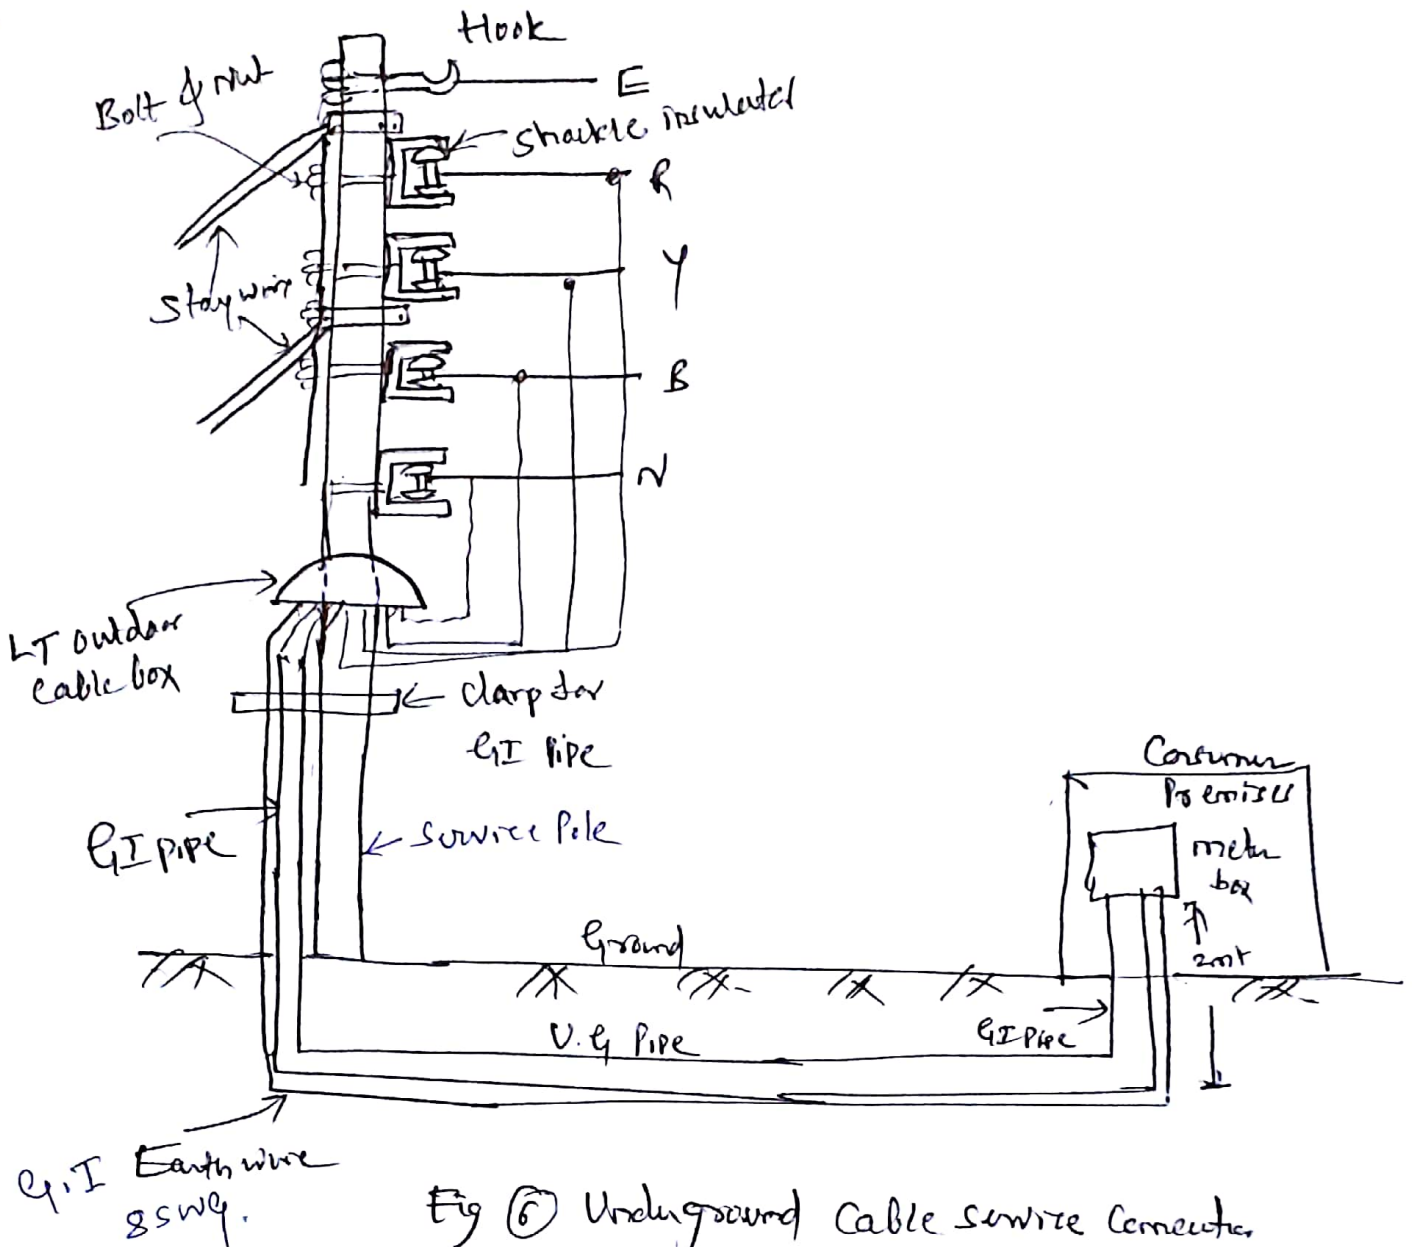 Hook
E
Bolt & nut
Shackle insulator
R
Y
Stay wire
B
N
LT outdoor
cable box
Clamp for
GI Pipe
Consumer
Premises
GI pipe
Service Pole
meter
box
Ground
2mt
U.G Pipe
GI Pipe
G.I Earth wire
8 SWG.
Fig 6 Underground Cable service Connection